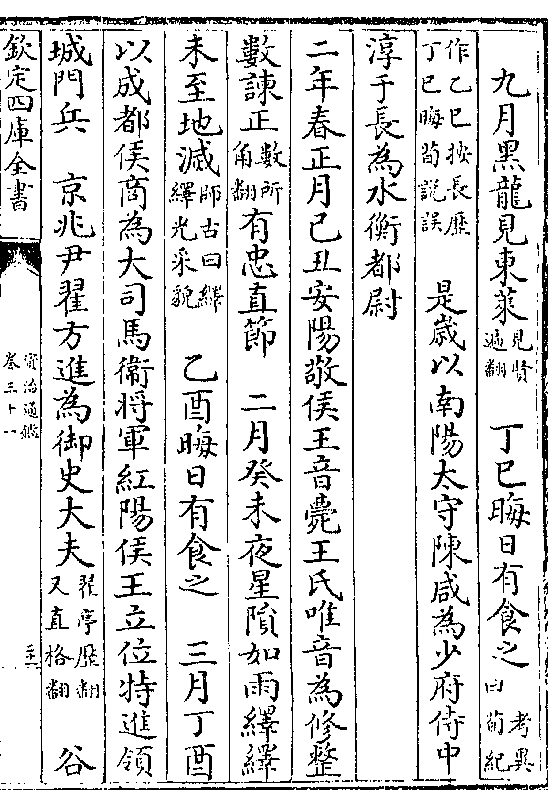 九月黑龍見東萊見賢遍翻　丁巳晦日有食之考異曰荀紀
作乙巳按長歷丁巳晦荀説誤　是歲以南陽太守陳咸為少府侍中
淳于長為水衡都尉
二年春正月己丑安陽敬侯王音薨王氏唯音為修整
數諫正數所角翻有忠直節　二月癸未夜星隕如雨繹繹
未至地滅師古曰繹繹光采貌　乙酉晦日有食之　三月丁酉
以成都侯商為大司馬衞將軍紅陽侯王立位特進領
城門兵　京兆尹翟方進為御史大夫翟亭歷翻又直格翻　谷
欽定四庫全書
資治通鑑
卷三十一